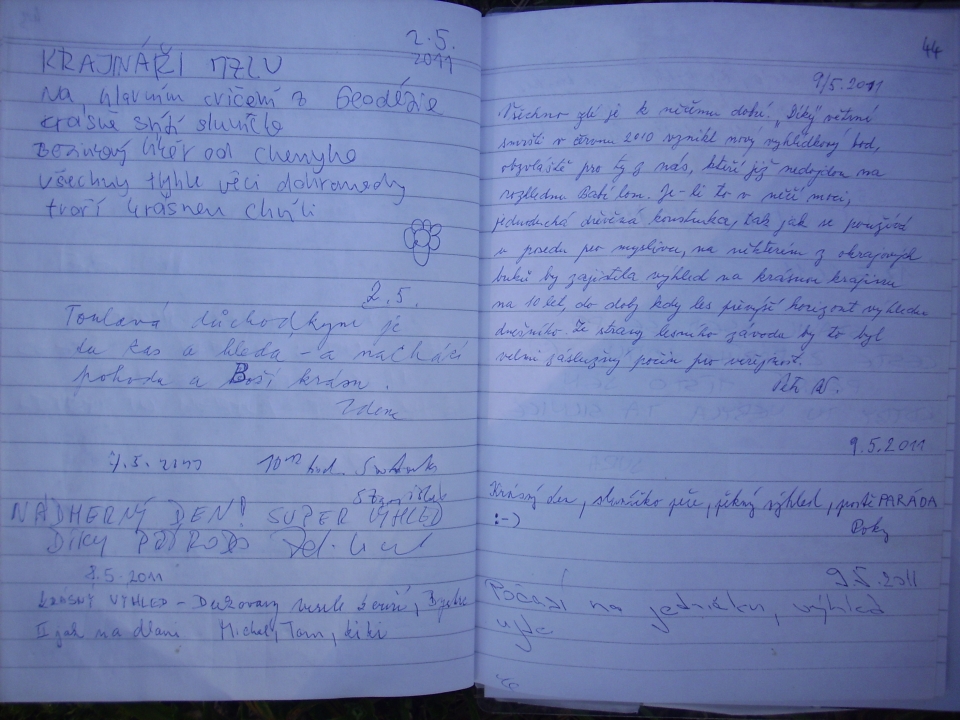 2.5.
2011
KRAJNÁŘI MZLU
Na hlavním cvičení z Geodézie
krásně svítí sluníčko
Bezinkový
všechny tyhle věci dohromady
tvoří krásnou chvíli
2.5.
Toulavá důchodkyně je
tu čas a hledá - a nachází
pohodu a Boží krásu.
Zdena
7.5. 2011 10 hod.
NÁDHERNÝ DEN! SUPER VÝHLED
DÍKY PŘÍRODO
8.5.2011
KRÁSNÝ VÝHLED -
II jak na dlani Michal, Tom, kiki
44
9/5.2011
Všechno zlé je k něčemu dobré. "Díky" větrné
smršti v červnu 2010 vznikl nový vyhlídkový bod,
obzvláště pro ty z nás, kteří již nedojdou na
rozhlednu Babí lom. Je-li to v něčí moci,
jednoduchá dřevěná konstrukce, tak jak se používá
u posedu pro myslivce, na některém z okrajových
buků by zajistila výhled na krásnou krajinu
na 10 let, do doby kdy les převýší horizont výhledu
dnešního. Ze strany lesního závodu by to byl
velmi záslužný počin pro veřejnost.
9.5.2011
Krásný den, sluníčko péče, pěkný výhled, prostě PARÁDA
:-)
Roky
9.5.2011
Počasí na jedničku, výhled
ujde